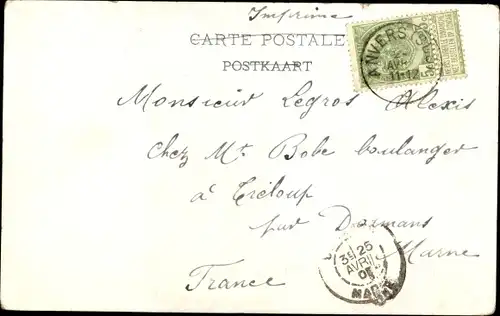 Imprimé
CARTE POSTALE
POSTKAART
ANVERS
AVR
11-12
Monsieur Legros Alexis
chez Mr Bobe boulanger
à Tréloup
par Dormans
Marne
France
3E 25
AVRIL
05
MARNE